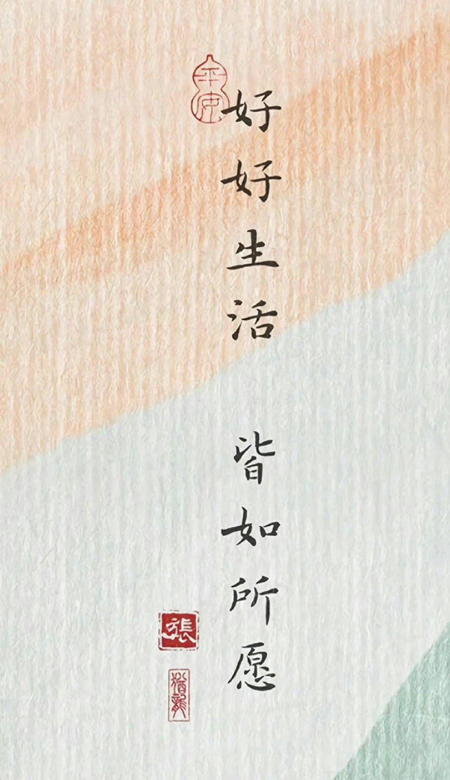 平安
好好生活 皆如所愿
張